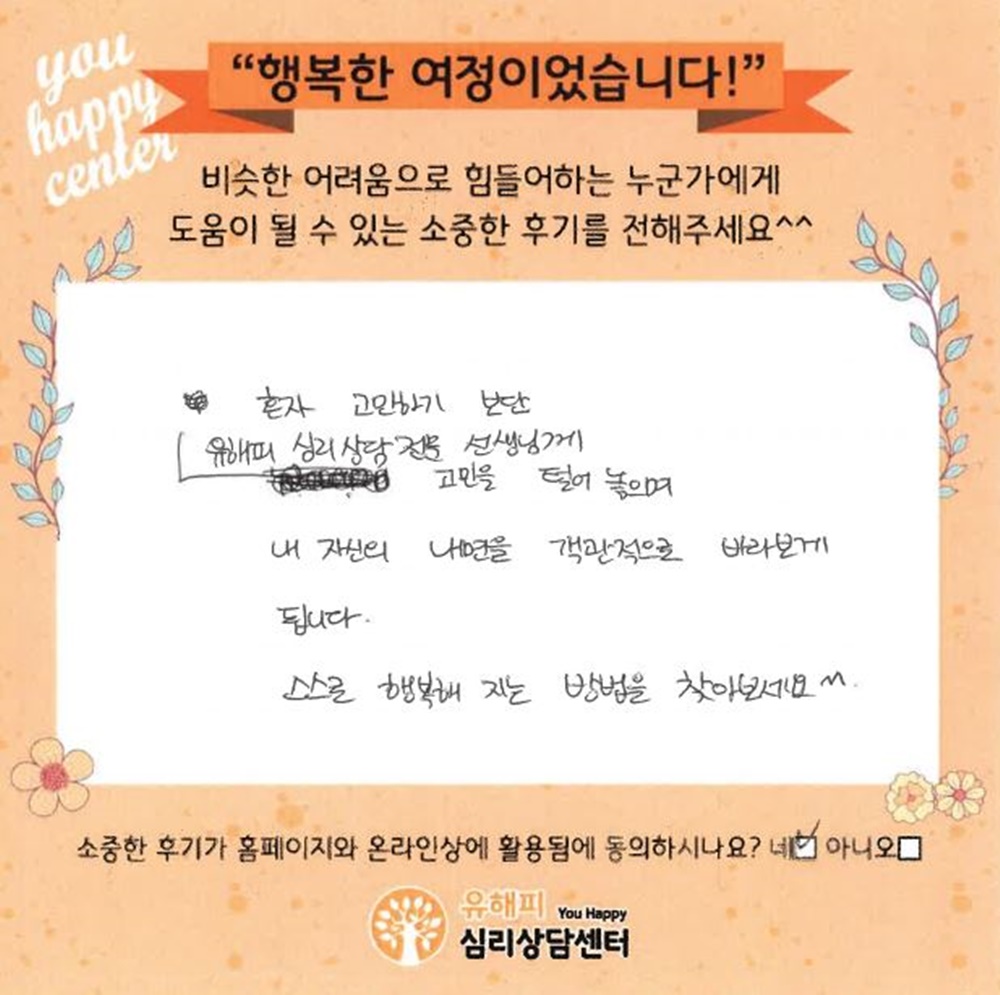 you
happy
center
“행복한 여정이었습니다!”
비슷한 어려움으로 힘들어하는 누군가에게
도움이 될 수 있는 소중한 후기를 전해주세요^^
혼자 고민하기 보단
유해피 심리상담 전문 선생님께
고민을 털어 놓으며
내 자신의 내면을 객관적으로 바라보게
됩니다.
스스로 행복해 지는 방법을 찾아보세요^^.
소중한 후기가 홈페이지와 온라인상에 활용됨에 동의하시나요? 네☑ 아니오☐
유해피 You Happy
심리상담센터